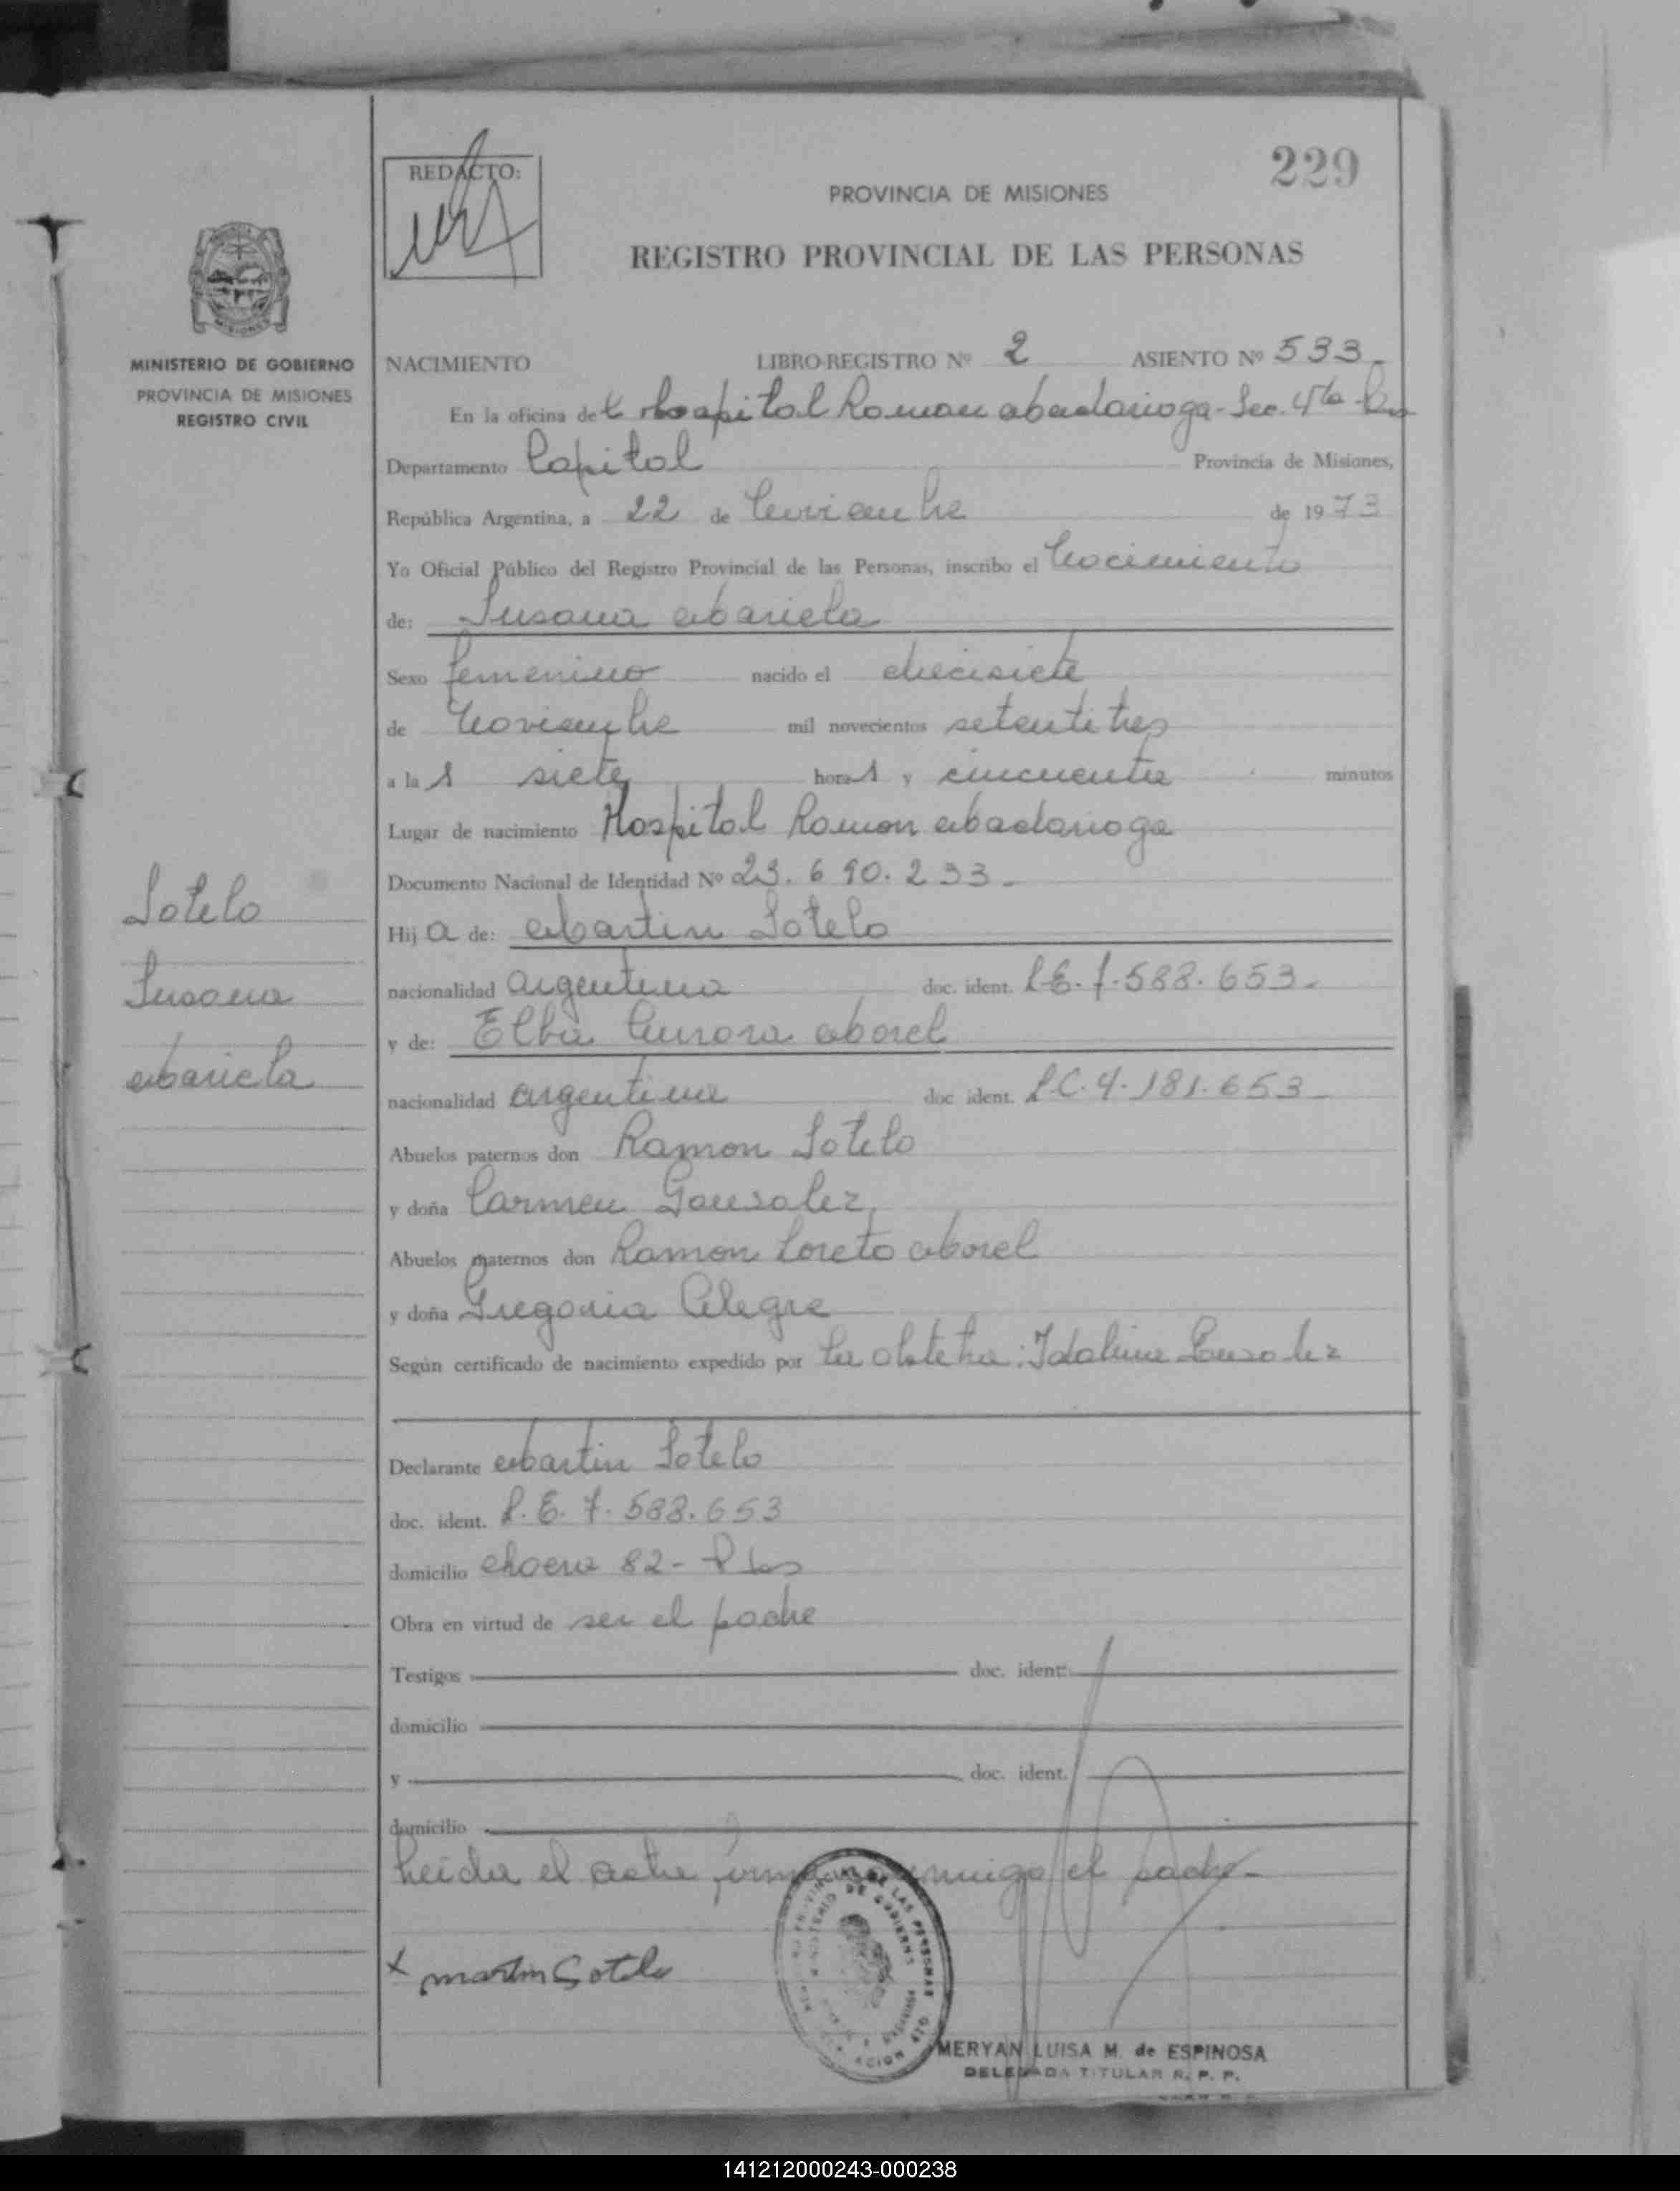 229
REDACTO:
PROVINCIA DE MISIONES
REGISTRO PROVINCIAL DE LAS PERSONAS
MINISTERIO DE GOBIERNO
PROVINCIA DE MISIONES
REGISTRO CIVIL
NACIMIENTO LIBRO-REGISTRO Nº 2 ASIENTO Nº 533
En la oficina del Hospital Ramon Madariaga - Sec. 4ta
Departamento Capital Provincia de Misiones,
República Argentina, a 22 de Noviembre de 1973
Yo Oficial Público del Registro Provincial de las Personas, inscribo el Nacimiento
de: Susana Mariela
Sexo femenino nacido el diecisiete
de Noviembre mil novecientos setentitres
a las siete horas y cincuenta minutos
Lugar de nacimiento Hospital Ramon Madariaga
Documento Nacional de Identidad Nº 23.690.233-
Hija de: Martin Sotelo
nacionalidad argentina doc. ident. L.E. 7.588.653-
y de: Elba Aurora Morel
nacionalidad argentina doc ident. L.C. 4.181.653-
Abuelos paternos don Ramon Sotelo
y doña Carmen Gonsalez
Abuelos maternos don Ramon Loreto Morel
y doña Gregoria Alegre
Según certificado de nacimiento expedido por la obstetra: Idalina Gonsalez
Sotelo
Susana
Mariela
Declarante Martin Sotelo
doc. ident. L.E. 7.588.653
domicilio 82- Pdas
Obra en virtud de ser el padre
Testigos doc. ident:
domicilio
y doc. ident.
domicilio
Leida el acta, firma conmigo el padre-
x martin Sotelo
MERYAN LUISA M. de ESPINOSA
DELEGADA TITULAR R. P. P.
141212000243-000238